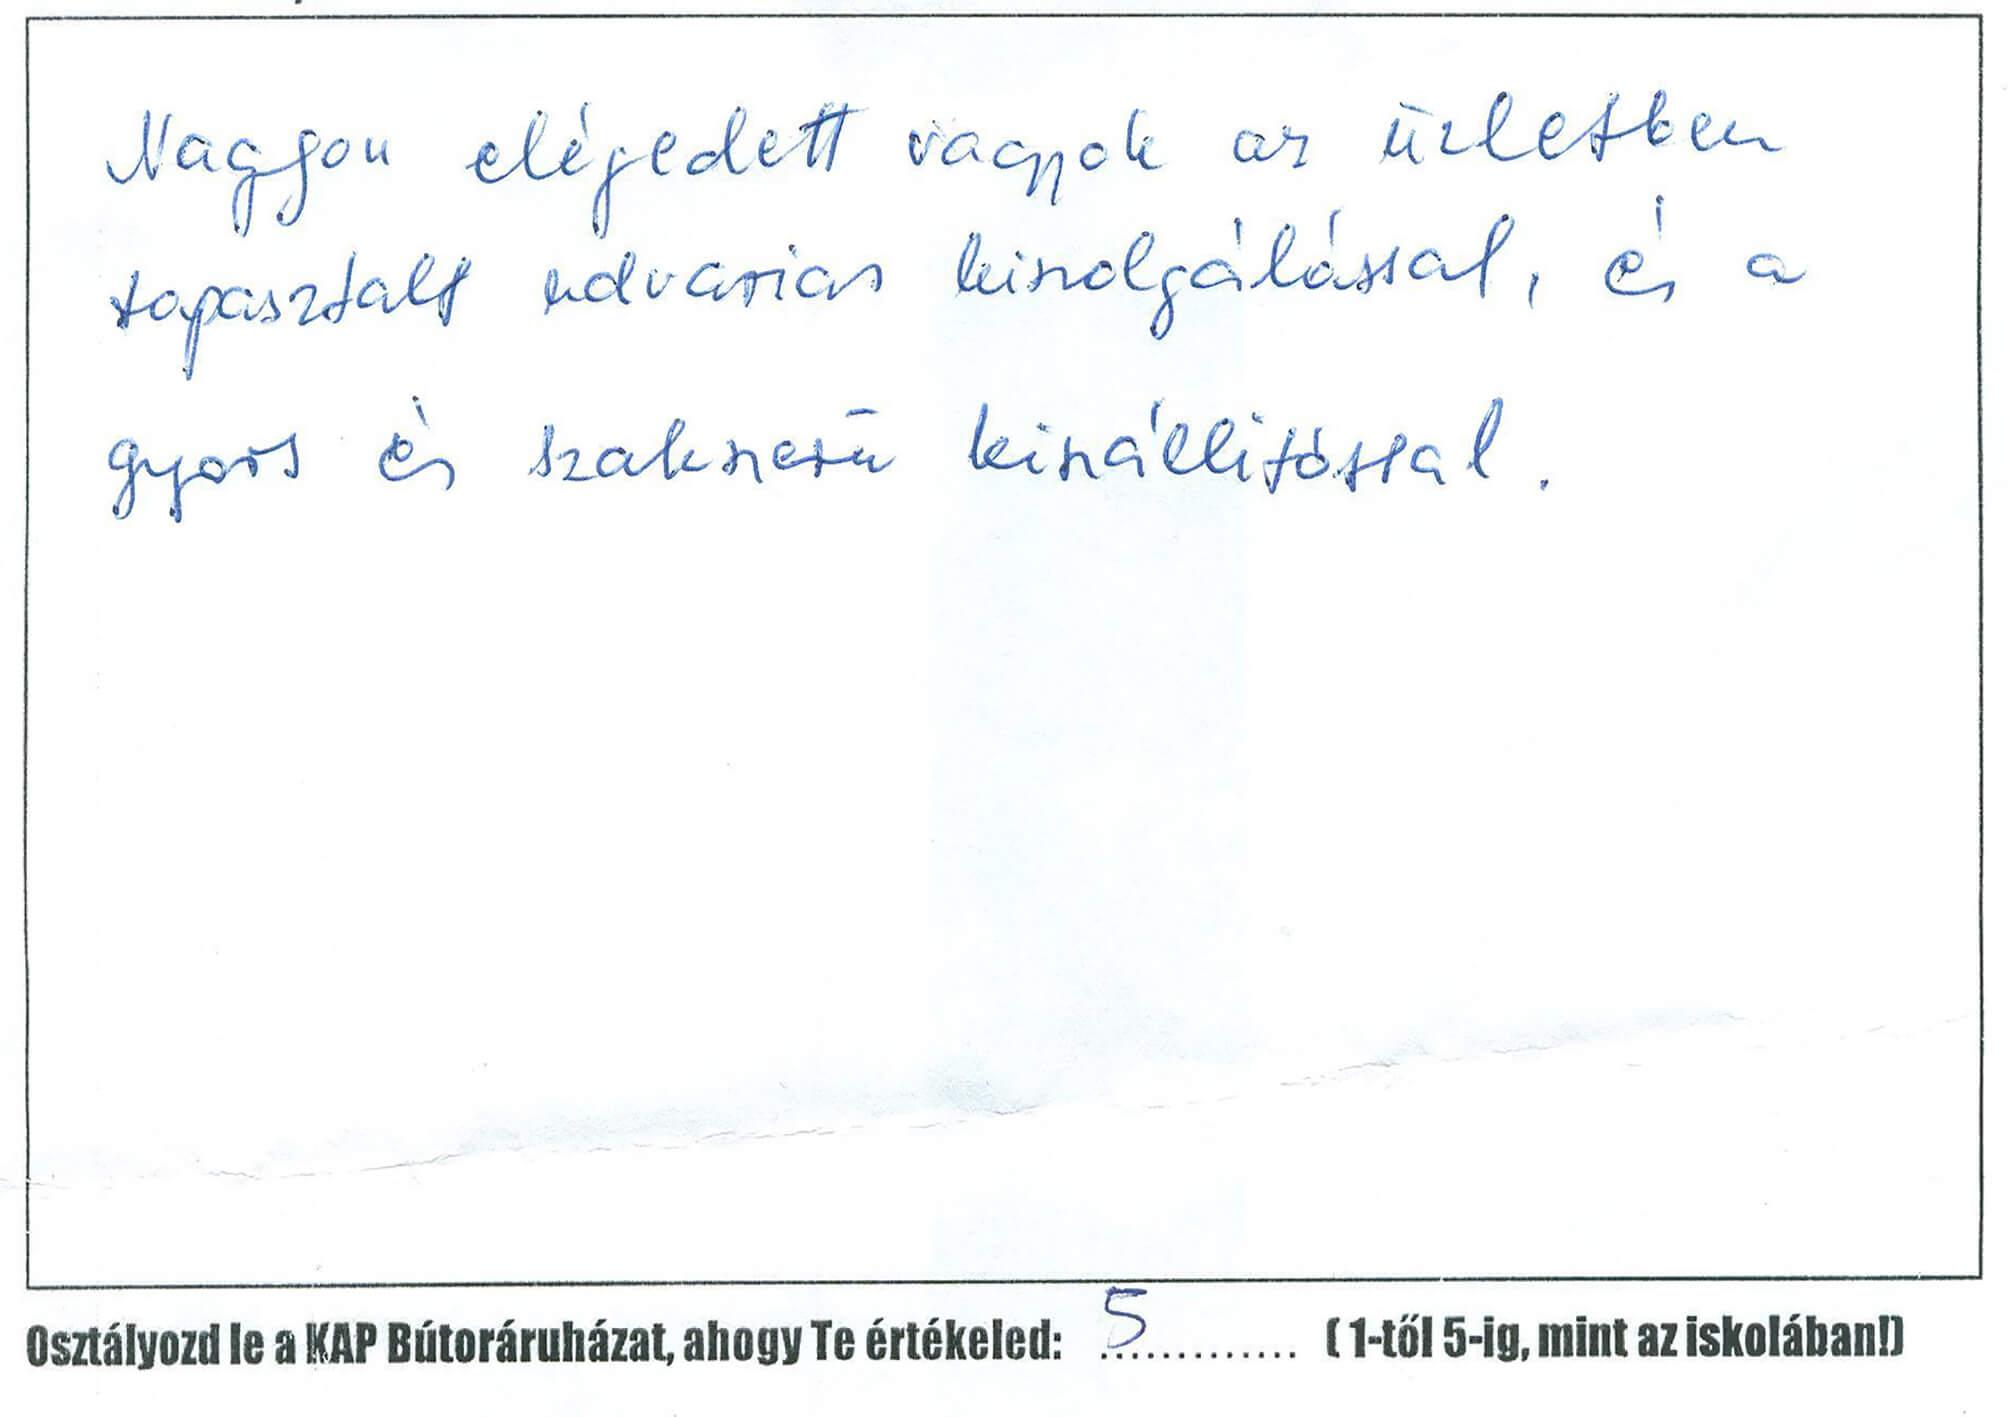 Nagyon elégedett vagyok az üzletben
tapasztalt udvarias kiszolgálással, és a
gyors és szakszerű kiszállítással.
Osztályozd le a KAP Bútoráruházat, ahogy Te értékeled: 5 ............. ( 1-től 5-ig, mint az iskolában!)